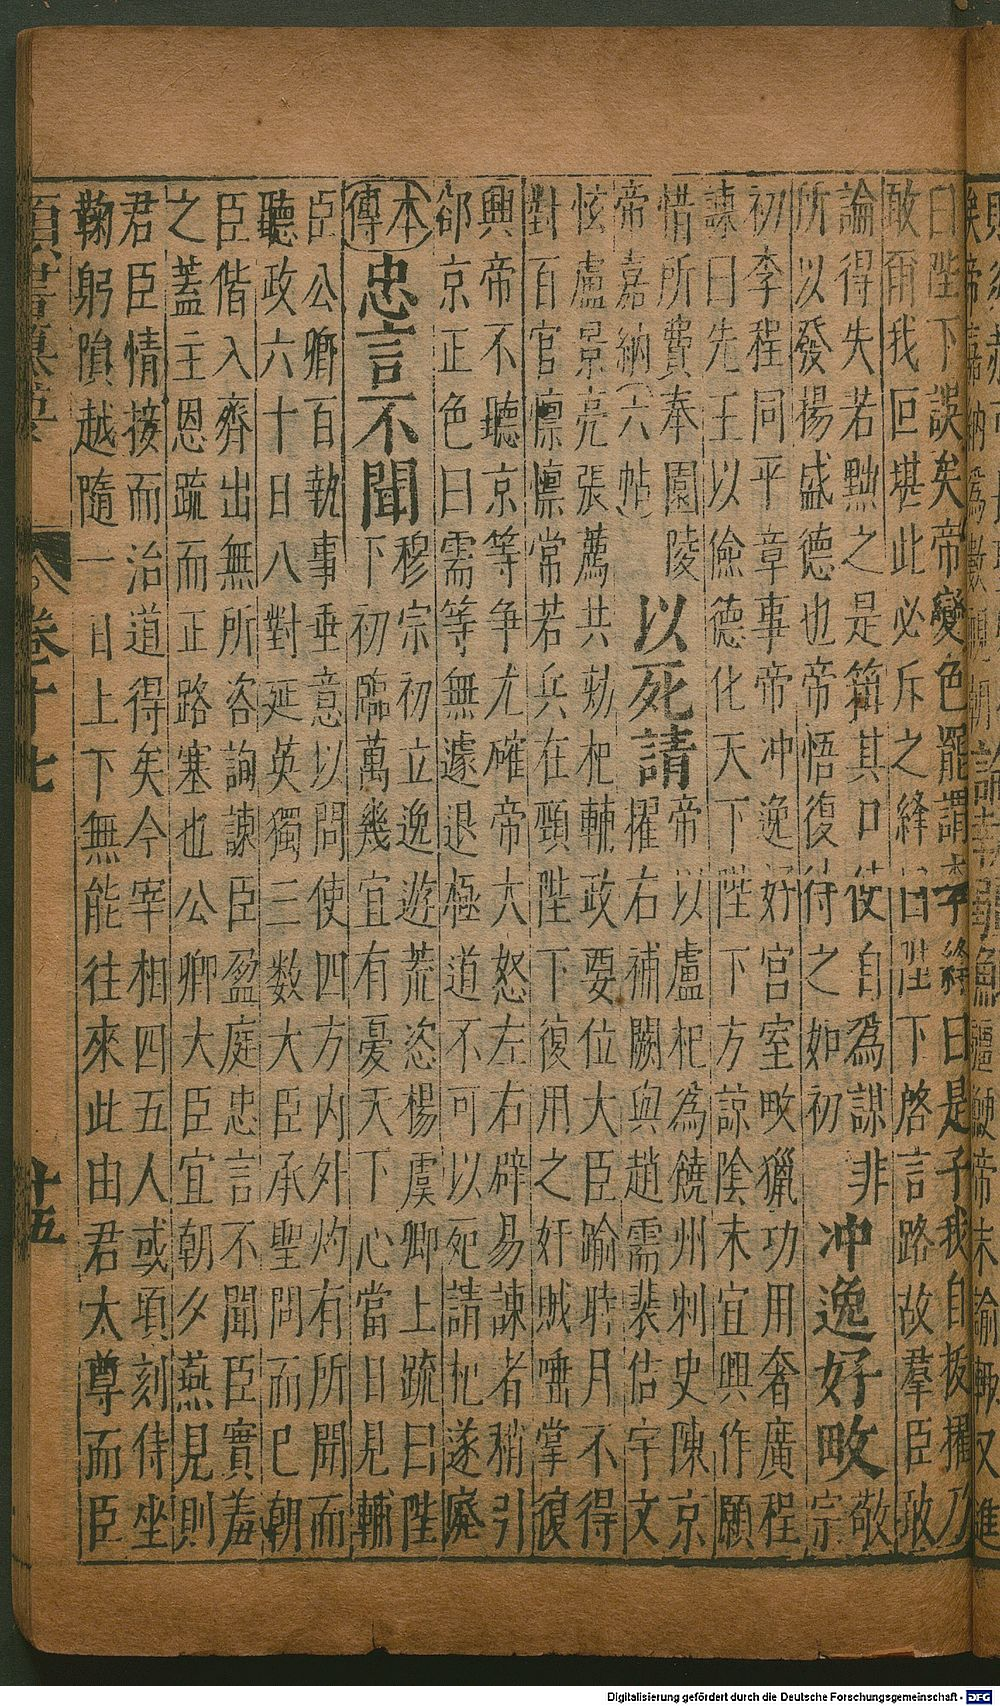 曰陛下誤矣帝變色罷謂 曰是子我自拔擢乃
敢爾我叵堪此必斥之絳曰陛下啓言路故羣臣敢
論得失若黜之是箝其口使自爲謀非
所以發揚盛德也帝悟復待之如初
冲逸好畋
敬宗
初李程同平章事帝冲逸好宮室畋獵功用奢廣程
諫曰先王以儉德化天下陛下方諒陰未宜興作願
惜所費奉園陵
帝嘉納(六帖)
以死請
帝以盧杞爲饒州刺史陳京
擢右補闕與趙需裴佶宇文
炫盧景亮張薦共劾杞輔政要位大臣踰時月不得
對百官懍懍常若兵在頸陛下復用之奸賊唾掌復
興帝不聽京等争尤確帝大怒左右辟易諫者稍引
郤京正色曰需等無遽退極道不可以死請杞遂廢
本傳
忠言不聞
穆宗初立逸遊荒恣楊虞卿上疏曰陛
下初臨萬幾宜有憂天下心當日見輔
臣公卿百執事垂意以問使四方内外灼有所聞而
聽政六十日八對延英獨三数大臣承聖問而已朝
臣偕入齊出無所咨詢諫臣盈庭忠言不聞臣實羞
之蓋主恩疏而正路塞也公卿大臣宜朝夕燕見則
君臣情接而治道得矣今宰相四五人或頃刻侍坐
鞠躬隕越隨一日上下無能往來此由君太尊而臣
卷十七
十五
Digitalisierung gefördert durch die Deutsche Forschungsgemeinschaft - DFG